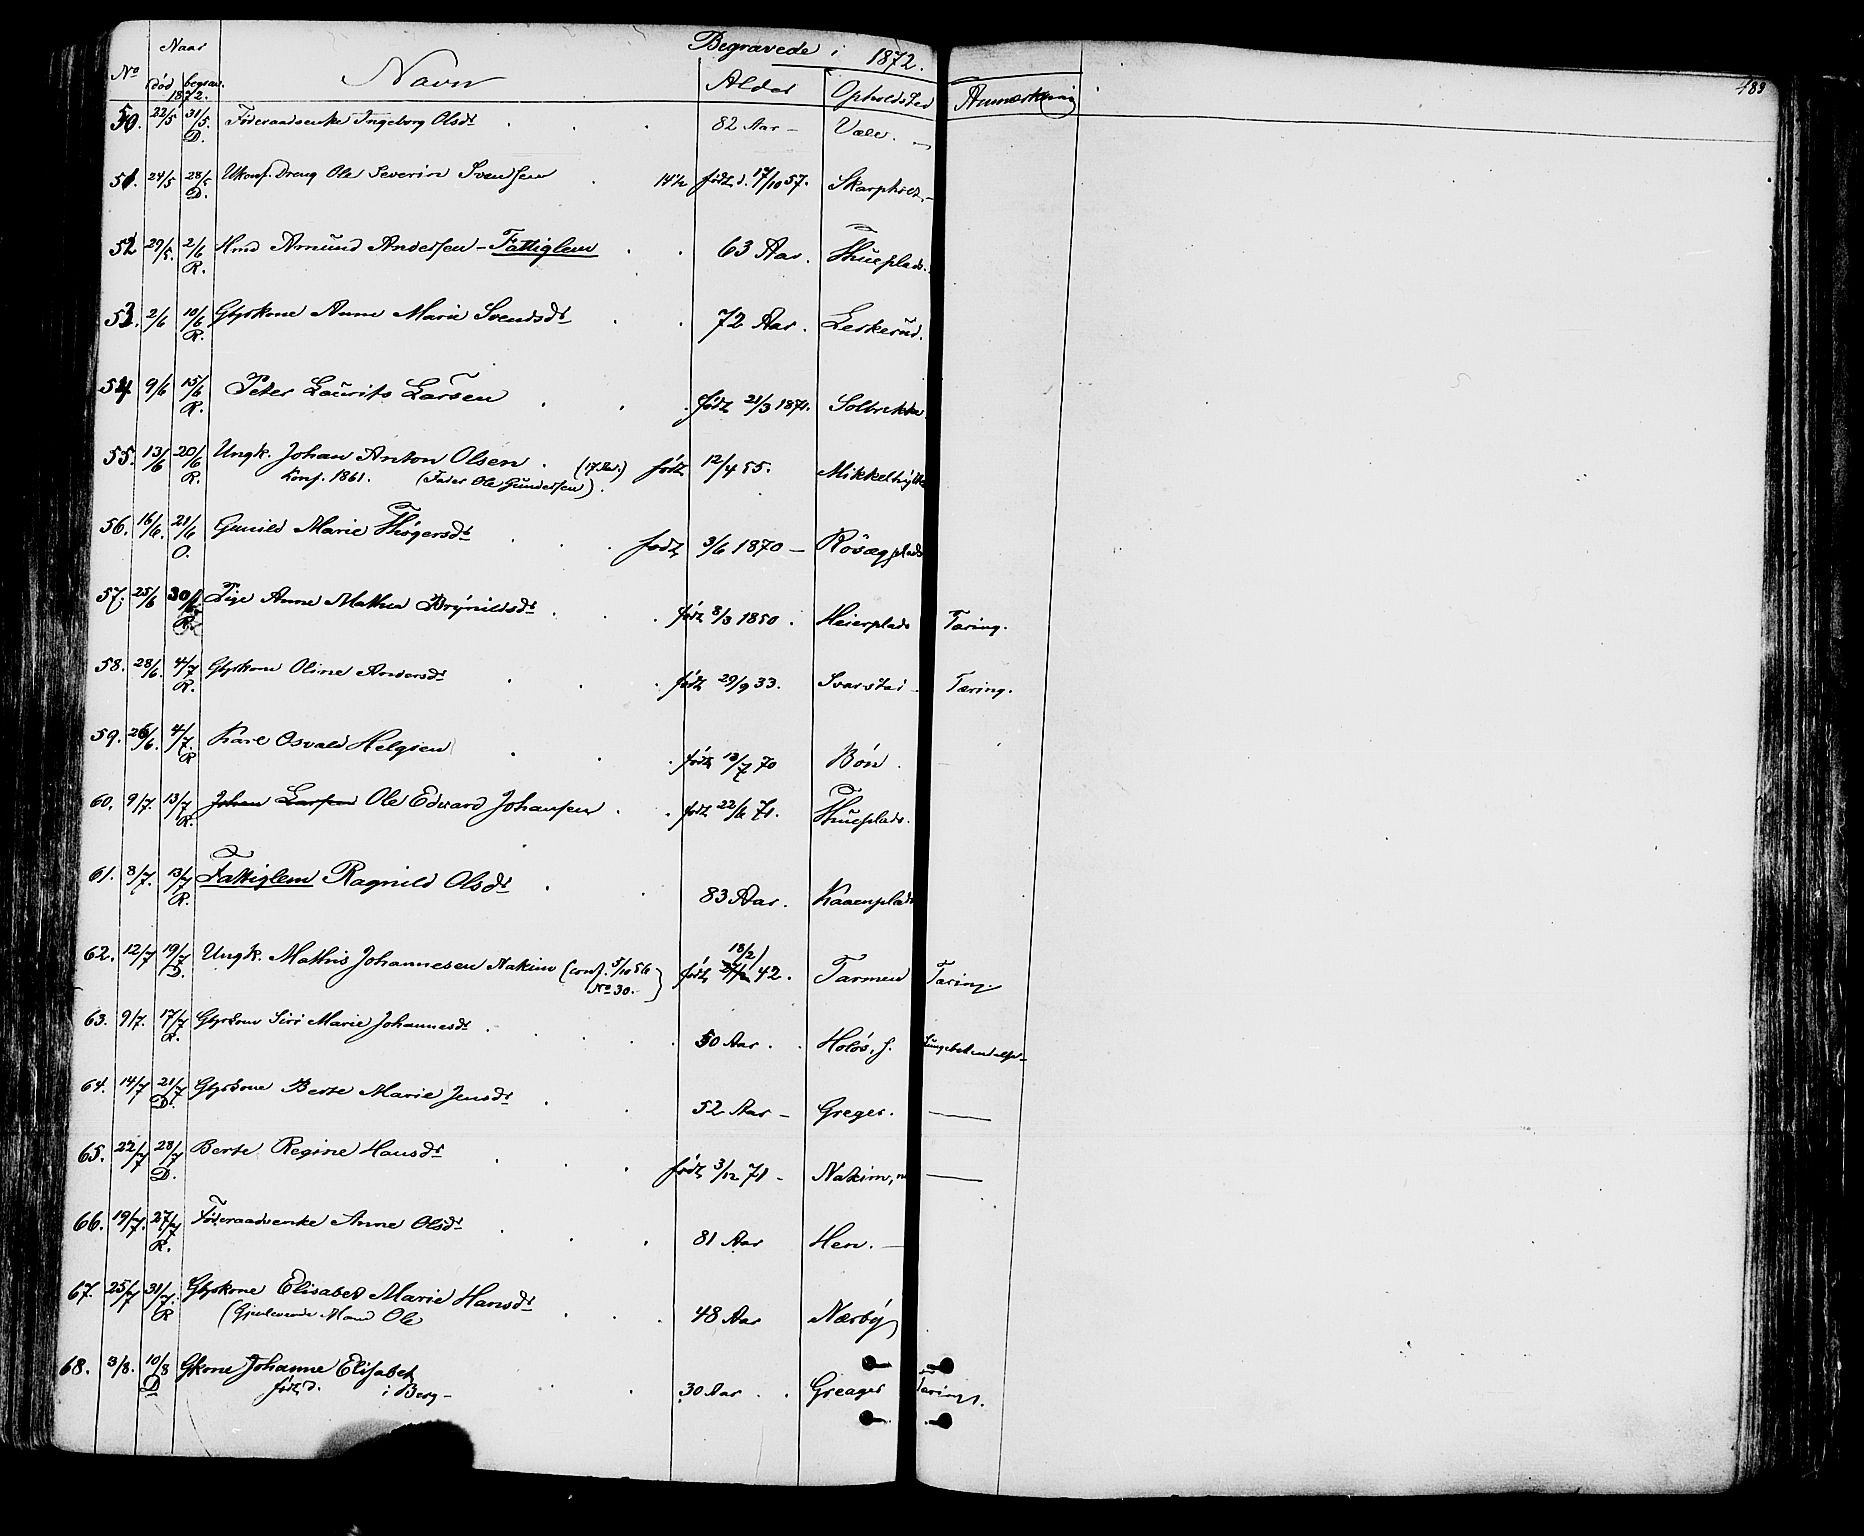 Begravede i 1872.
489
No Naar Navn Alder Opholdsted Anmærkning
død begrav.
1872.
50. 22/5 31/5. Föderaadsenke Ingeborg Olsdt 82 Aar - Væle.
D.
51. 24/5 28/5 Ukonf. Dreng Ole Severin Svendsen 14½ født d. 17/10 57. Skarphol
D.
52 29/5. 2/6 Hmd Amund Andersen - Fattiglem 63 Aar. Thueplads.
R.
53. 2/6 10/6 Gbrskone Anne Marie Svendsdt 72 Aar. Leskerud.
R.
54 9/6 15/6 Peter Laurits Larsen født 21/3 1871. Solbrekke
R.
55. 13/6 20/6 Ungk. Johan Anton Olsen. (17 Aar.) født 12/4 55. Mikkelbytte
R. Konf. 1861. (Fader Ole Gundersen).
56. 16/6. 21/6 Gunild Marie Thögersdt født 3/6 1870 - Rösægplads
O.
57. 25/6 30/6 Pige Anne Mathea Brynildsdt født 8/3 1850. Heierplads Tæring.
R.
58. 28/6. 4/7 Gbrskone Oline Andersdt født 29/9 33. Svarstad Tæring.
R.
59. 26/6. 4/7. Karl Osvald Helgsen født 13/7 70 Bön.
R
60. 9/7. 13/7 Johan Larsen Ole Edvard Johansen født 22/6 71. Thueplads.
R.
61. 8/7. 13/7 Fattiglem Ragnild Olsdt 83 Aar. Kaaenplads
R.
62. 12/7 19/7 Ungk. Mathis Johannesen Nakim (conf. 5/10 56 født 18/2) 42. Tarmen Tæring.
D. No 30.)
63. 9/7. 17/7 Gbrskone Siri Marie Johannesdt 50 Aar. Holös, f.
R.
64. 14/7 21/7 Gbrskone Berte Marie Jensdt 52 Aar - Greger. —
D.
65. 22/7 28/7 Berte Regine Hansdt født 3/12 71 - Nakim, n —
D.
66. 19/7. 27/7 Föderaadsenke Anne Olsdt 81 Aar Hen. —
R.
67. 25/7 31/7. Gbrskone Elisabet Marie Hansdt 48 Aar Nærby
R (Gjenlevende Mand Ole
68. 3/8. 10/8 Gkone Johanne Elisabet 30 Aar. Greager Tæring.
D født d. i Berg -